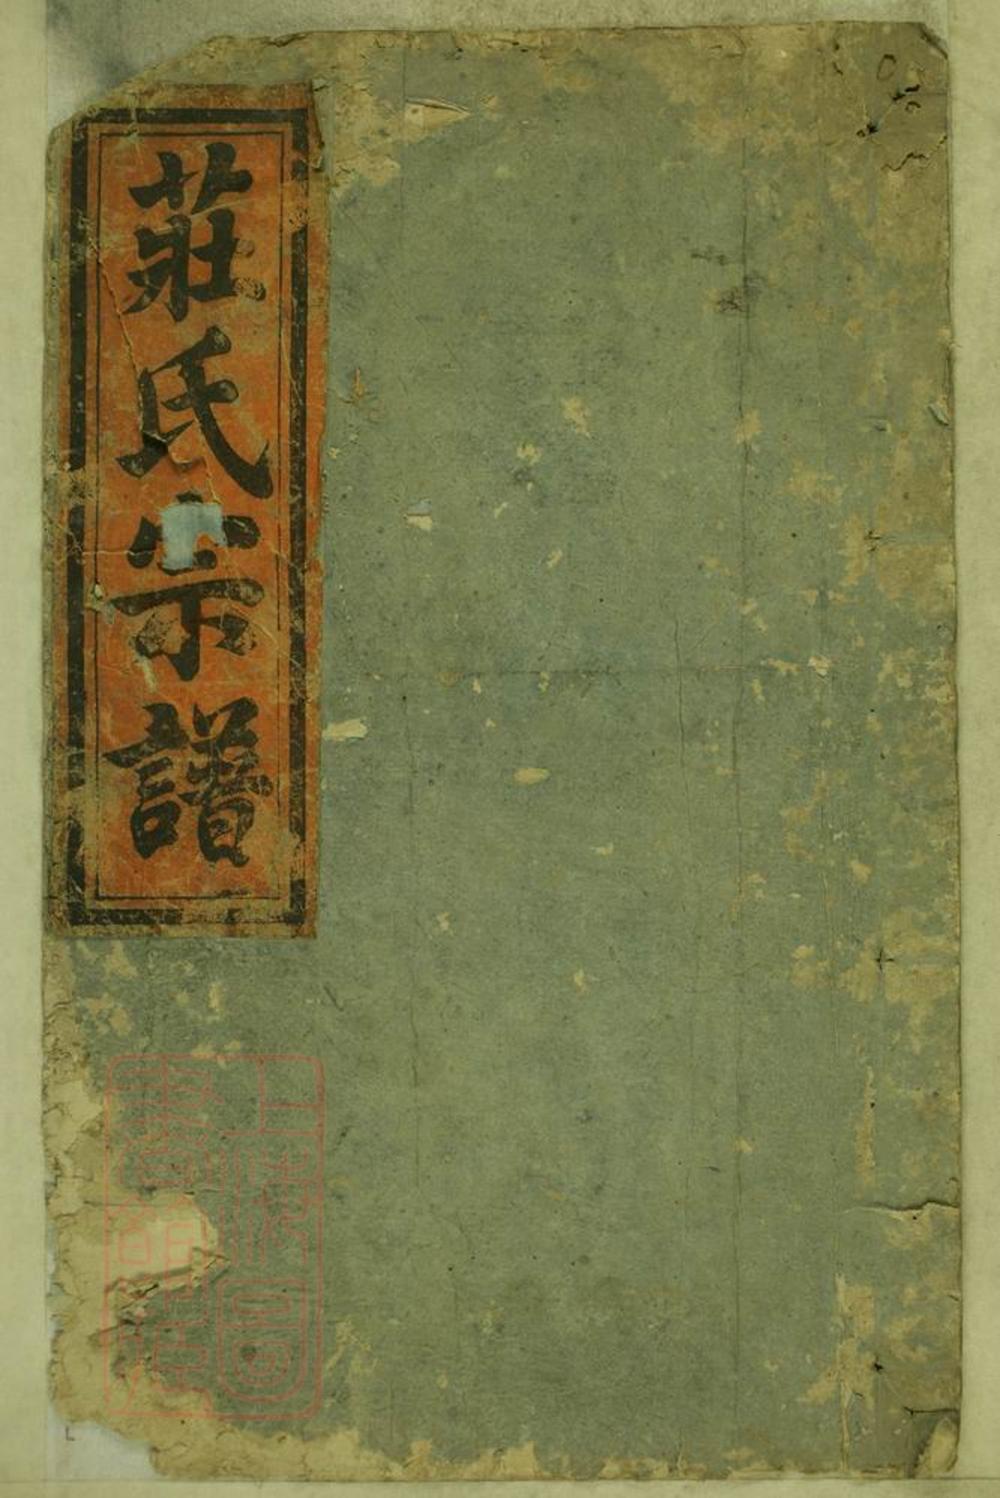 莊氏宗譜
上海圖書館藏